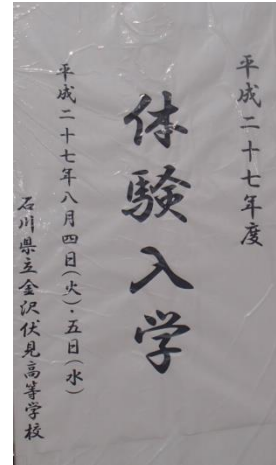 平成二十七年度
体験入学
平成二十七年八月四日(火)・五日(水)
石川県立金沢伏見高等学校